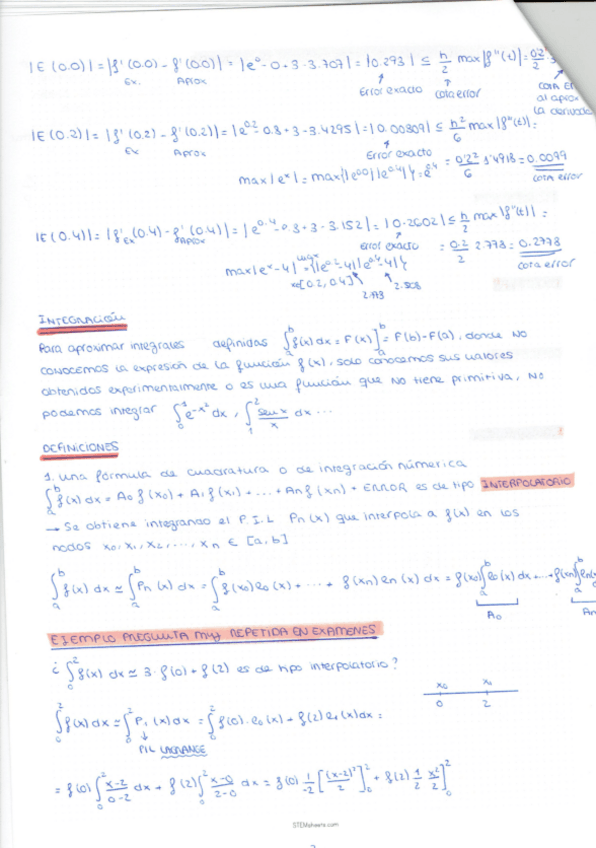 |E(0.0)| = |f'(0.0) - f'(0.0)| = |e⁰ - 0 + 3 - 3.707| = |0.293| ≤ h/2 max|f''(t)| = 0.2/2
Ex. Aprox Error exacto cota error
|E(0.2)| = |f'(0.2) - f'(0.2)| = |e^0.2 - 0.8 + 3 - 3.4295| = |0.00809| ≤ h²/6 max|f'''(t)| =
Ex Aprox Error exacto
max|eˣ| = max{|e^0.0||e^0.4|} = e^0.4 = 0.2²/6 1'4918 = 0.0099
cota error
|E(0.4)| = |f'(0.4) - f'(0.4)| = |e^0.4 - 0.3 + 3 - 3.152| = |0.2602| ≤ h/2 max|f''(t)| =
Ex Aprox Error exacto = 0.2/2 2.778 = 0.2778
max|eˣ - 4| = max{|e^0.2 - 4||e^0.4 - 4|} cota error
x∈[0.2, 0.4] 2.508
INTEGRACIÓN
Para aproximar integrales definidas ∫ₐᵇ f(x) dx = F(x)]ₐᵇ = F(b) - F(a), donde NO
conocemos la expresión de la función f(x), solo conocemos sus valores
obtenidos experimentalmente o es una función que NO tiene primitiva, NO
podemos integrar ∫₀¹ e^-x² dx, ∫₁² sen x/x dx ...
DEFINICIONES
1. una fórmula de cuadratura o de integración númerica
∫ₐᵇ f(x) dx = A₀ f(x₀) + A₁ f(x₁) + ... + An f(xn) + ERROR es de tipo INTERPOLATORIO
→ Se obtiene integrando el P.I.L Pn(x) que interpola a f(x) en los
nodos x₀, x₁, x₂, ..., xn ∈ [a, b]
∫ₐᵇ f(x) dx ≃ ∫ₐᵇ Pn(x) dx = ∫ₐᵇ f(x₀) l₀(x) + ... + f(xn) ln(x) dx = f(x₀) ∫ₐᵇ l₀(x) dx + ... + f(xn) ∫ₐᵇ ln(x)
A₀ An
EJEMPLO PREGUNTA MUY REPETIDA EN EXAMENES
¿ ∫₀² f(x) dx ≃ 3·f(0) + f(2) es de tipo interpolatorio?
x₀ x₁
0 2
∫₀² f(x) dx ≃ ∫₀² P₁(x) dx = ∫₀² f(0)·l₀(x) + f(2) l₁(x) dx =
PIL LAGRANGE
= f(0) ∫₀² x-2/0-2 dx + f(2) ∫₀² x-0/2-0 dx = f(0) 1/-2 [(x-2)²/2]₀² + f(2) 1/2 x²/2]₀²
STEMsheets.com